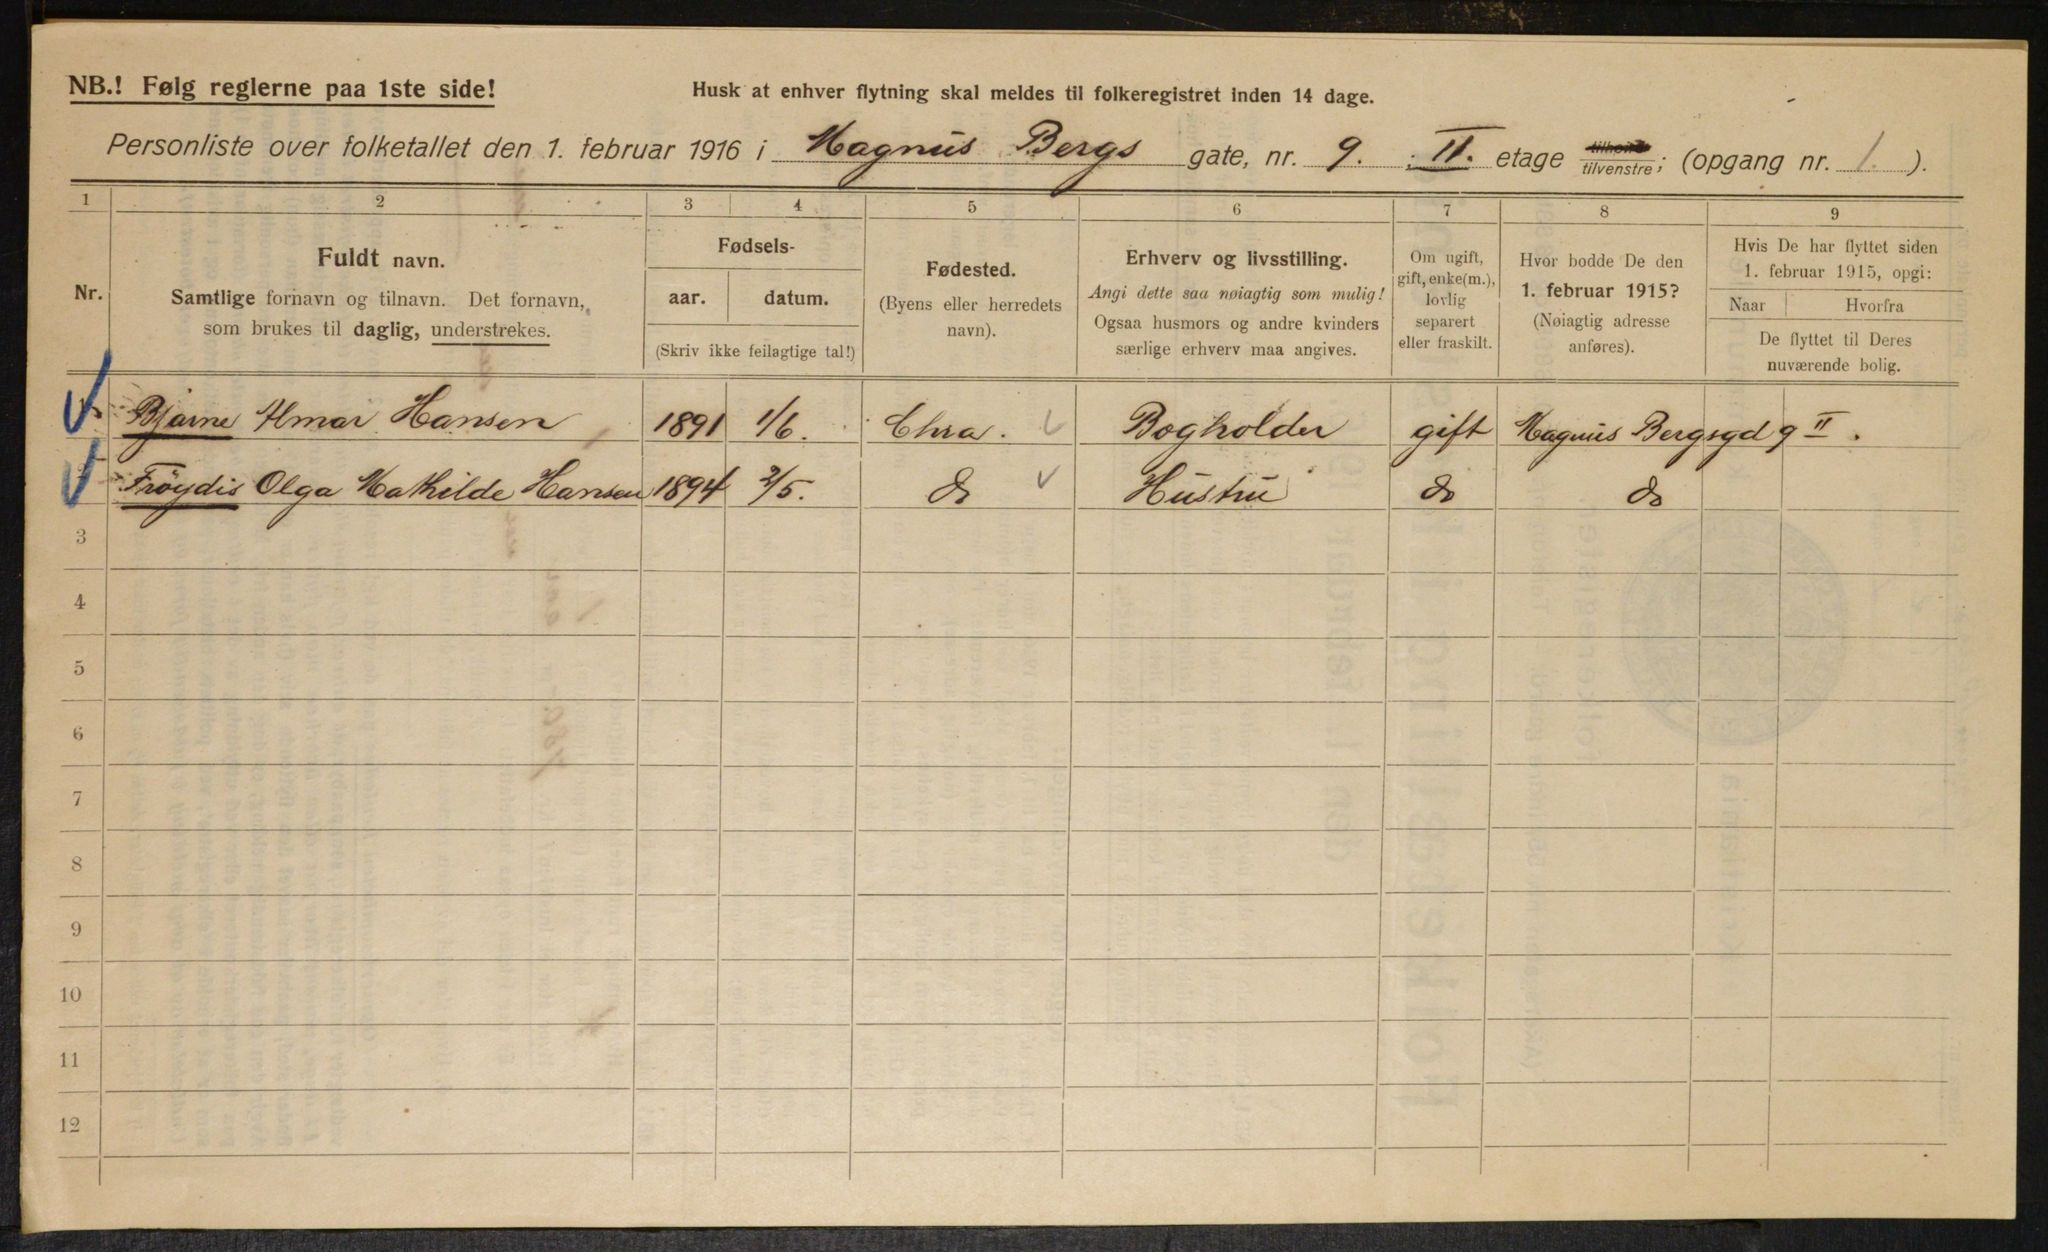 NB.! Følg reglerne paa 1ste side!
Husk at enhver flytning skal meldes til folkeregistret inden 14 dage.
Personliste over folketallet den 1. februar 1916 i Magnus Bergs gate, nr. 9. II. etage tilhøire/tilvenstre; (opgang nr. 1 ).
1 2 3 4 5 6 7 8 9
Nr.
Fuldt navn.
Samtlige fornavn og tilnavn. Det fornavn,
som brukes til daglig, understrekes.
Fødsels-
aar. datum.
(Skriv ikke feilagtige tal!)
Fødested.
(Byens eller herredets
navn).
Erhverv og livsstilling.
Angi dette saa nøiagtig som mulig!
Ogsaa husmors og andre kvinders
særlige erhverv maa angives.
Om ugift,
gift, enke(m.),
lovlig
separert
eller fraskilt.
Hvor bodde De den
1. februar 1915?
(Nøiagtig adresse
anføres).
Hvis De har flyttet siden
1. februar 1915, opgi:
Naar Hvorfra
De flyttet til Deres
nuværende bolig.
Bjarne Almar Hansen 1891 1/6. Chra. Bogholder gift Magnus Bergsgd 9 II.
Fröydis Olga Mathilde Hansen 1894 2/5. do Hustru do do
3
4
5
6
7
8
9
10
11
12